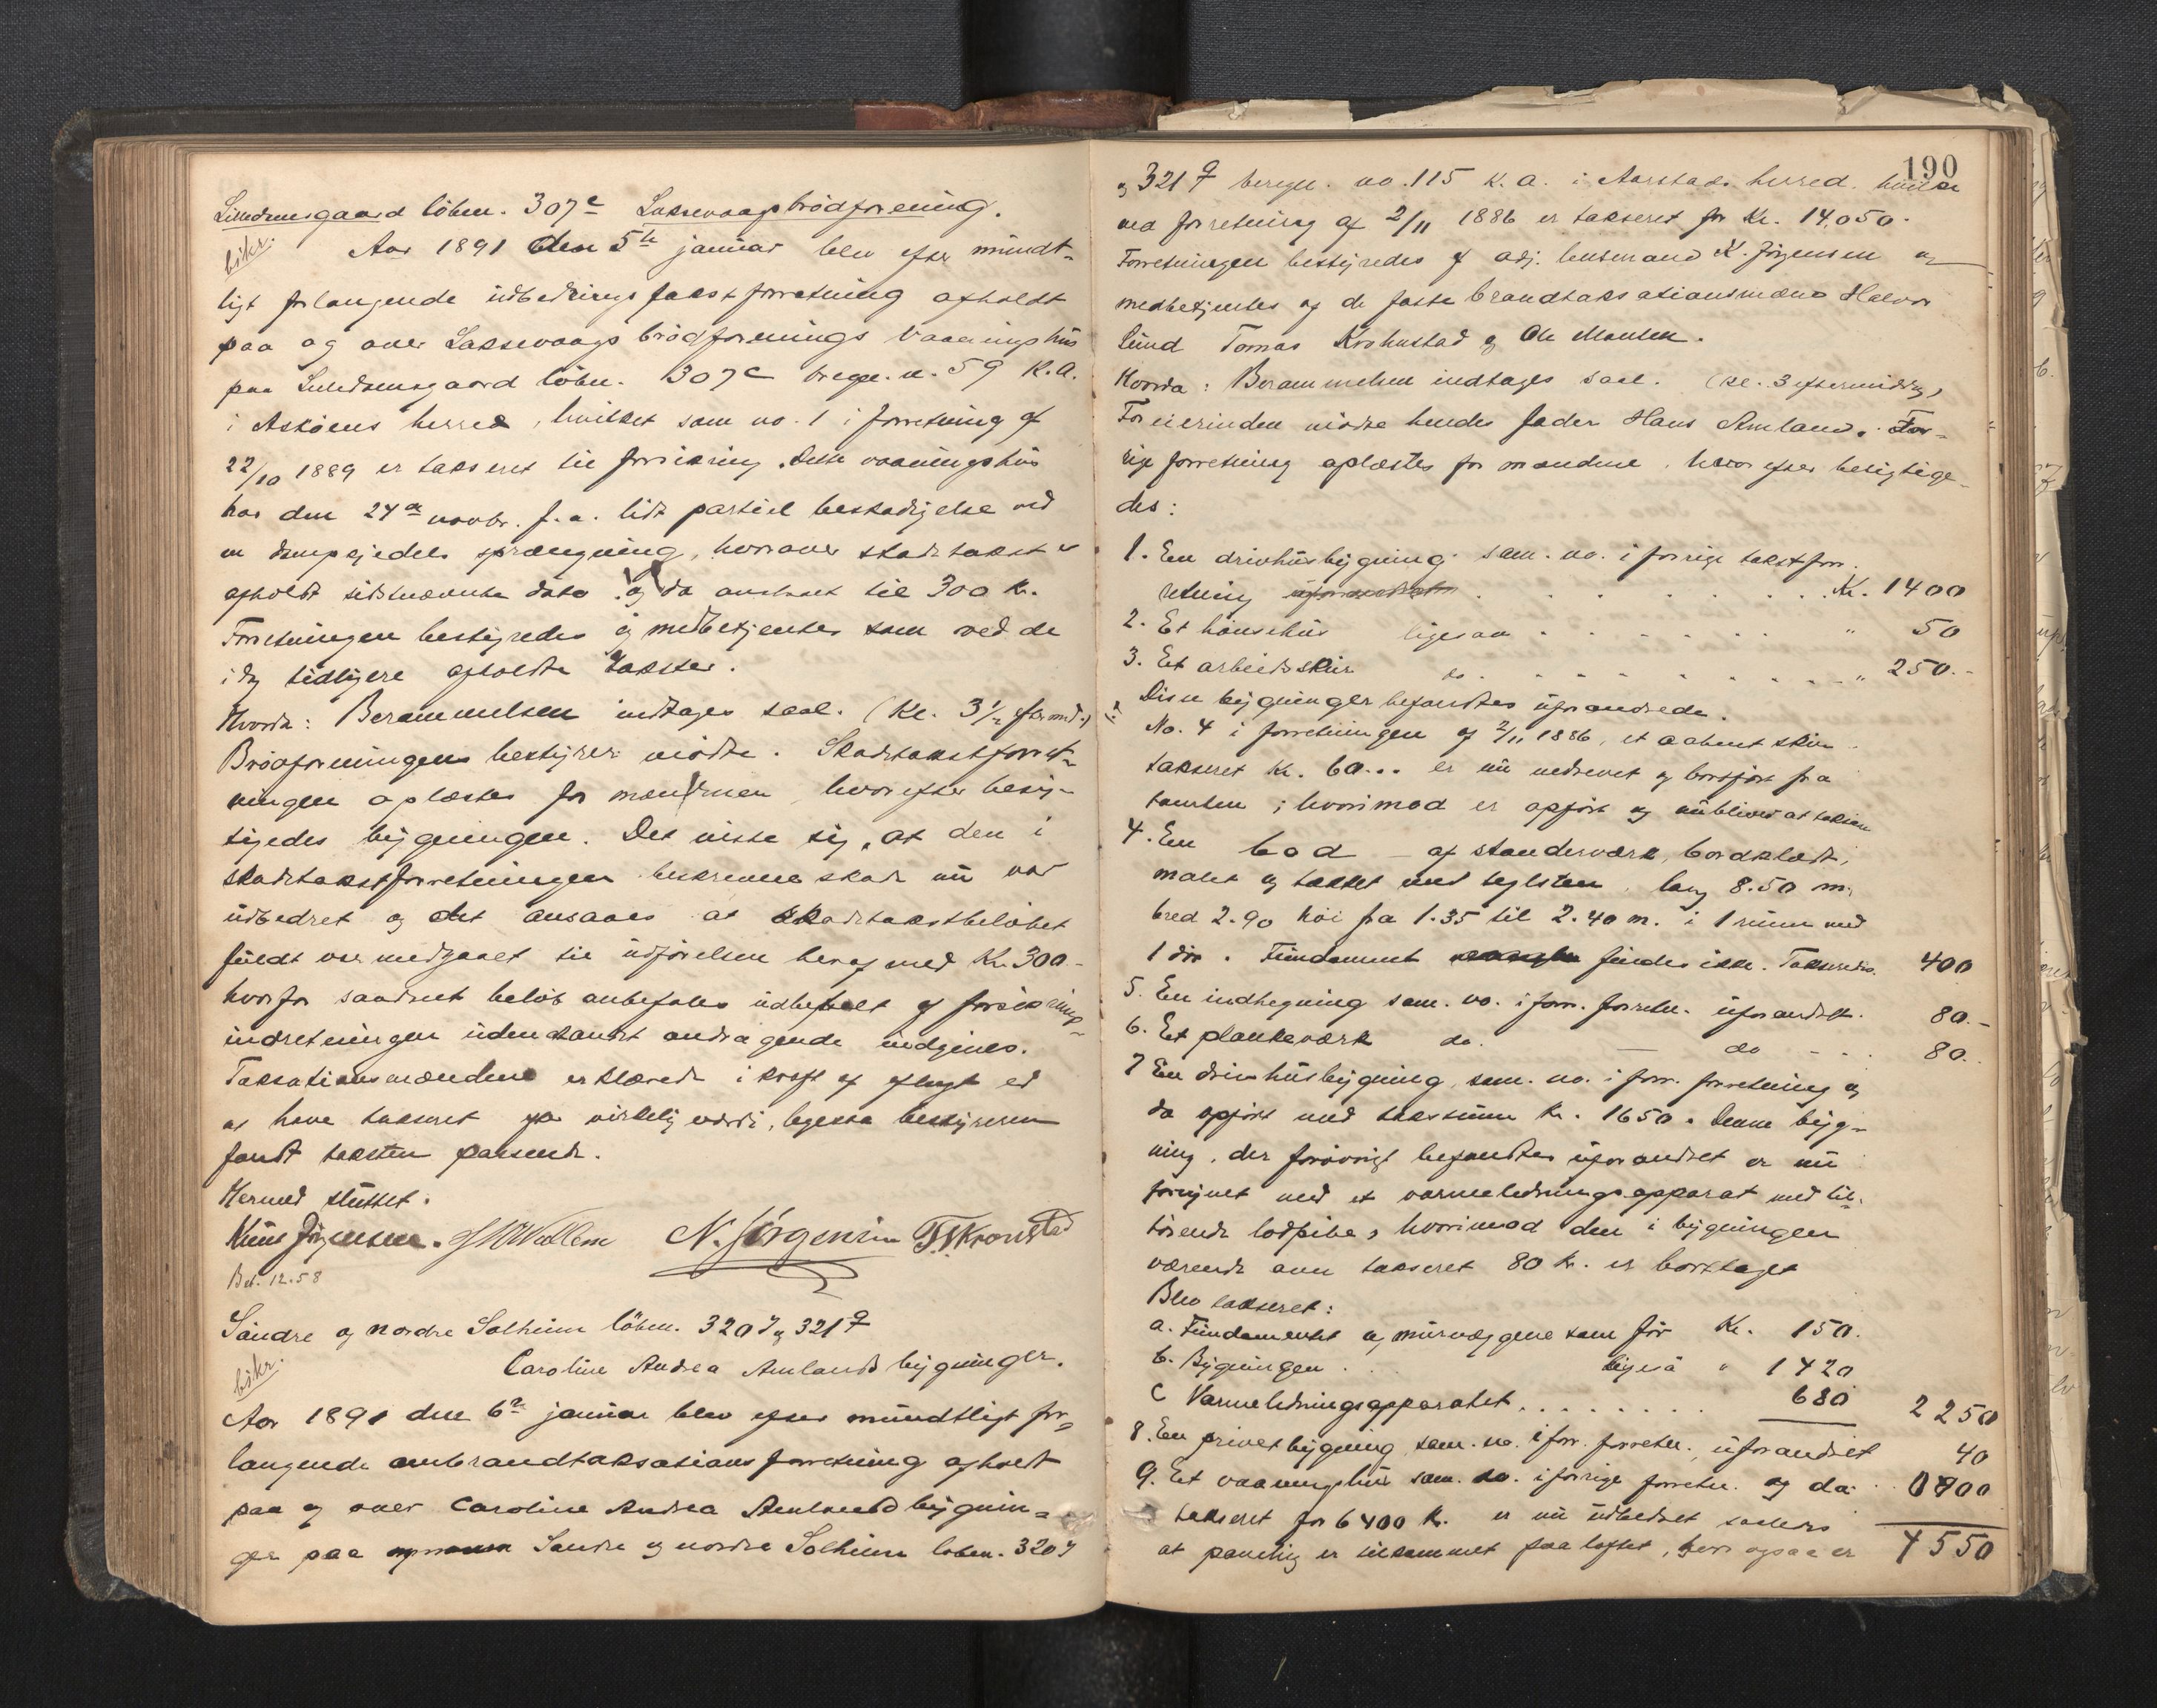 Lindmesgaard löbn. 307c Laksevaags brödforening.
bskr.
Aar 1891 den 5te januar blev efter mundt-
ligt forlangende udbedrings takstforretning afholdt
paa og over Laksevaags brödforenings vaaningshus
paa löbn. 307c bregn. n. 59 K.A.
i Asköens herred, hvilket som no. 1 i forretning af
22/10 1889 er takseret til forsikring. Dette vaaningshus
har den 24de novbr. f.a. lidt partiel beskadigelse ved
en dampkjedels sprængning, hvorover skadetakst er
afholdt sidstnævnte dato og da ansat til 300 kr.
Forretningen bestyredes og medbetjentes som ved de
idag tidligere afholdte takster.
Hvorda: Berammelsen indtages saal. (Kl. 3½ eftermd.)
Brödforeningens bestyrer mödte. Skadetakstforret-
ningen oplæstes for mændene hvorefter besig-
tigedes bygningen. Det viste sig, at den i
skadetakstforretningen beskrevne skade nu var
udbedret og det ansaaes at skadetakstbelöbet
fuldt var medgaaet til udförelsen heraf med Kr. 300.-
hvorfor saadant belöb anbefales udbetalt af forsikrings-
indretningen uden andragende indgives.
Taksationsmændene erklærede i kraft af aflagt ed
at have takseret efter virkelig værdi, ligesaa bestyreren
fandt taksten passende.
Hermed sluttet.
Knut Jörgensen. N. Jörgensen T. Kronstad
Bet. 12.58
Söndre og nordre Solheim löbn. 320 og 321 q
bskr.
Caroline Andrea Amlands bygninger.
Aar 1891 den 6te januar blev efter mundtligt for-
langende ombrandtaksationsforretning afholdt
paa og over Caroline Andrea Amlands bygnin-
ger paa Söndre og nordre Solheim löbn. 320
190
og 321 q bregn. no. 115 K.A. i Aarstads herred, hvilke
ved forretning af 2/11 1886 er takseret for Kr. 14,050.
Forretningen bestyredes af adj. lensmand K. Jörgensen og
medbetjentes af de faste brandtaksationsmænd Halvor
Lund Tomas Krohnstad og Ole Monsen.
Hvorda: Berammelsen indtages saal. (kl. 3 eftermiddag)
For eierinden mödte hendes fader Hans Amland. For-
rige forretning oplæstes for mændene, hvorefter besigtige-
des:
1. En drivhusbygning sam. no. i forrige takstfor-
retning . . . . . Kr. 1400
2. Et hönsehus ligesaa . . . . . " 50
3. Et arbeidsskur do. . . . . . " 250.-
Disse bygninger befandtes uforandrede.
No. 4 i forretningen af 2/11 1886, et aabent skur
takseret Kr. 60... er nu nedrevet og bortfört fra
tomten; hvorimod er opfört og nu bliver at taksere
4. En bod af standerværk, bordklædt,
malet og tækket med teglsten, lang 8.50 m.,
bred 2.90 höi fra 1.35 til 2.40 m. i 1 rum med
1 dör. Fundament findes ikke. Takseredes. 400
5. En indhegning sam. no. i forr. forretn. uforandret. 80.-
6. Et plankeværk do. — do - - . 80.
7 En drivhusbygning, sam. no. i forr. forretning og
da opfört med takstsum Kr. 1650. Denne byg-
ning, der forövrigt befandtes uforandret er nu
fornyet med et varmeledningsapparat med til-
hörende lodpibe, hvorimod den i bygningen
værende ovn takseret 80 kr. er borttaget
Blev takseret:
a. Fundamentet og murvæggene som för Kr. 150.
b. Bygningen . ligesaa " 1420
c Varmeledningsapparatet . . . . . 680 2250
8. En privetbygning, sam. no. i forr. forretn., uforandret 40
9. Et vaaningshus sam. no. i forrige forretn. og da
takseret for 6400 kr. er nu udbedret saaledes
at paneling er tilkommet paa loftet, hvor ogsaa er 4550